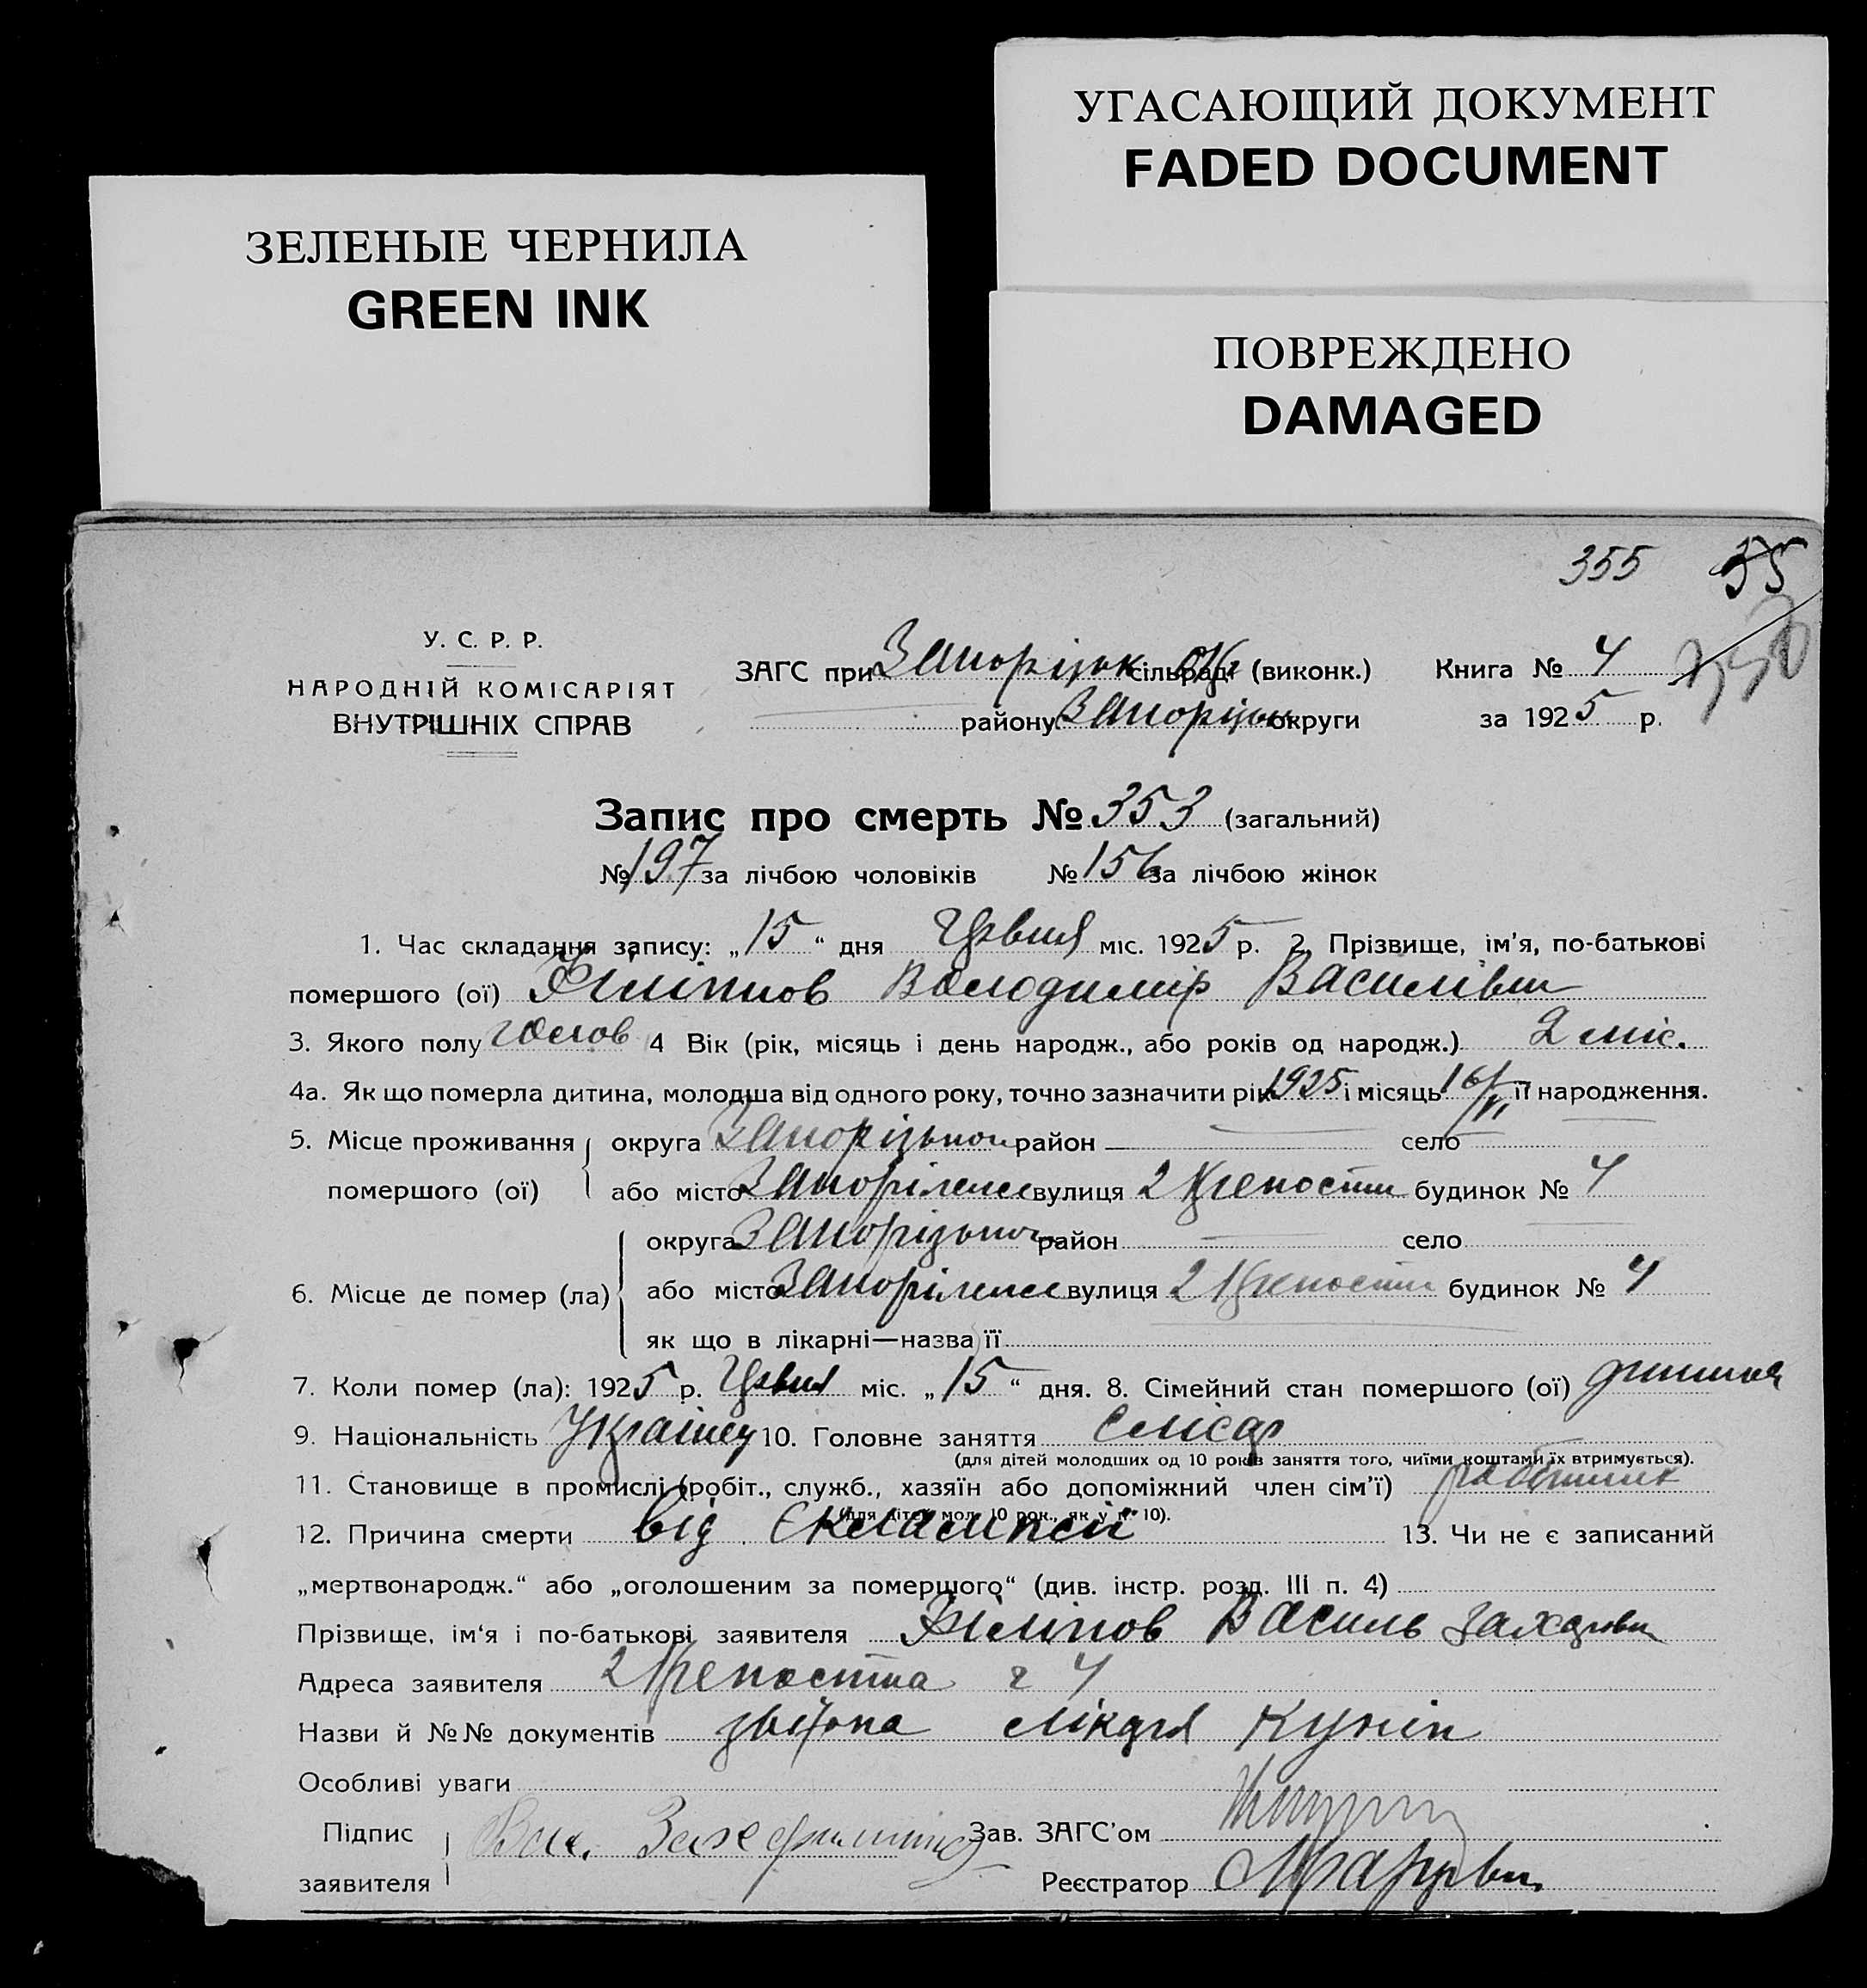 УГАСАЮЩИЙ ДОКУМЕНТ
FADED DOCUMENT
ЗЕЛЕНЫЕ ЧЕРНИЛА
GREEN INK
ПОВРЕЖДЕНО
DAMAGED
355 35
350
У. С. Р. Р.
НАРОДНІЙ КОМІСАРІЯТ
ВНУТРІШНІХ СПРАВ
ЗАГС при Запорізьк сільраді (виконк.) Книга № 4
району Запорізьк округи за 1925 р.
Запис про смерть № 353 (загальний)
№ 197 за лічбою чоловіків № 156 за лічбою жінок
1. Час складання запису: „15“ дня міс. 1925 р. 2. Прізвище, ім'я, по-батькові
помершого (ої) Філіпов Володимір Василівич
3. Якого полу чолов 4 Вік (рік, місяць і день народж., або років од народж.) 2 міс.
4а. Як що померла дитина, молодша від одного року, точно зазначити рік 1925 і місяць 16/VI її народження.
5. Місце проживання округа Запорізької район — село —
помершого (ої) або місто Запоріжжє вулиця 2 Крепости будинок № 4
округа Запорізької район — село —
6. Місце де помер (ла) або місто Запоріжжє вулиця 2 Крепости будинок № 4
як що в лікарні—назва її
7. Коли помер (ла): 1925 р. міс. „15“ дня. 8. Сімейний стан помершого (ої) дитина
9. Національність Українец 10. Головне заняття слісар
(для дітей молодших од 10 років заняття того, чиїми коштами їх втримується).
11. Становище в промислі (робіт., служб., хазяїн або допоміжний член сім'ї) робітник
(для дітей мол. 10 рок., як у п. 10).
12. Причина смерти від Єклампсії 13. Чи не є записаний
„мертвонародж.“ або „оголошеним за помершого“ (див. інстр. розд. III п. 4)
Прізвище, ім'я і по-батькові заявителя Філіпов Василь Захарович
Адреса заявителя 2 Крепостна 4
Назви й №№ документів лікаря Кунін
Особливі уваги
Підпис Вас. Зах Филипов Зав. ЗАГС'ом
заявителя Реєстратор